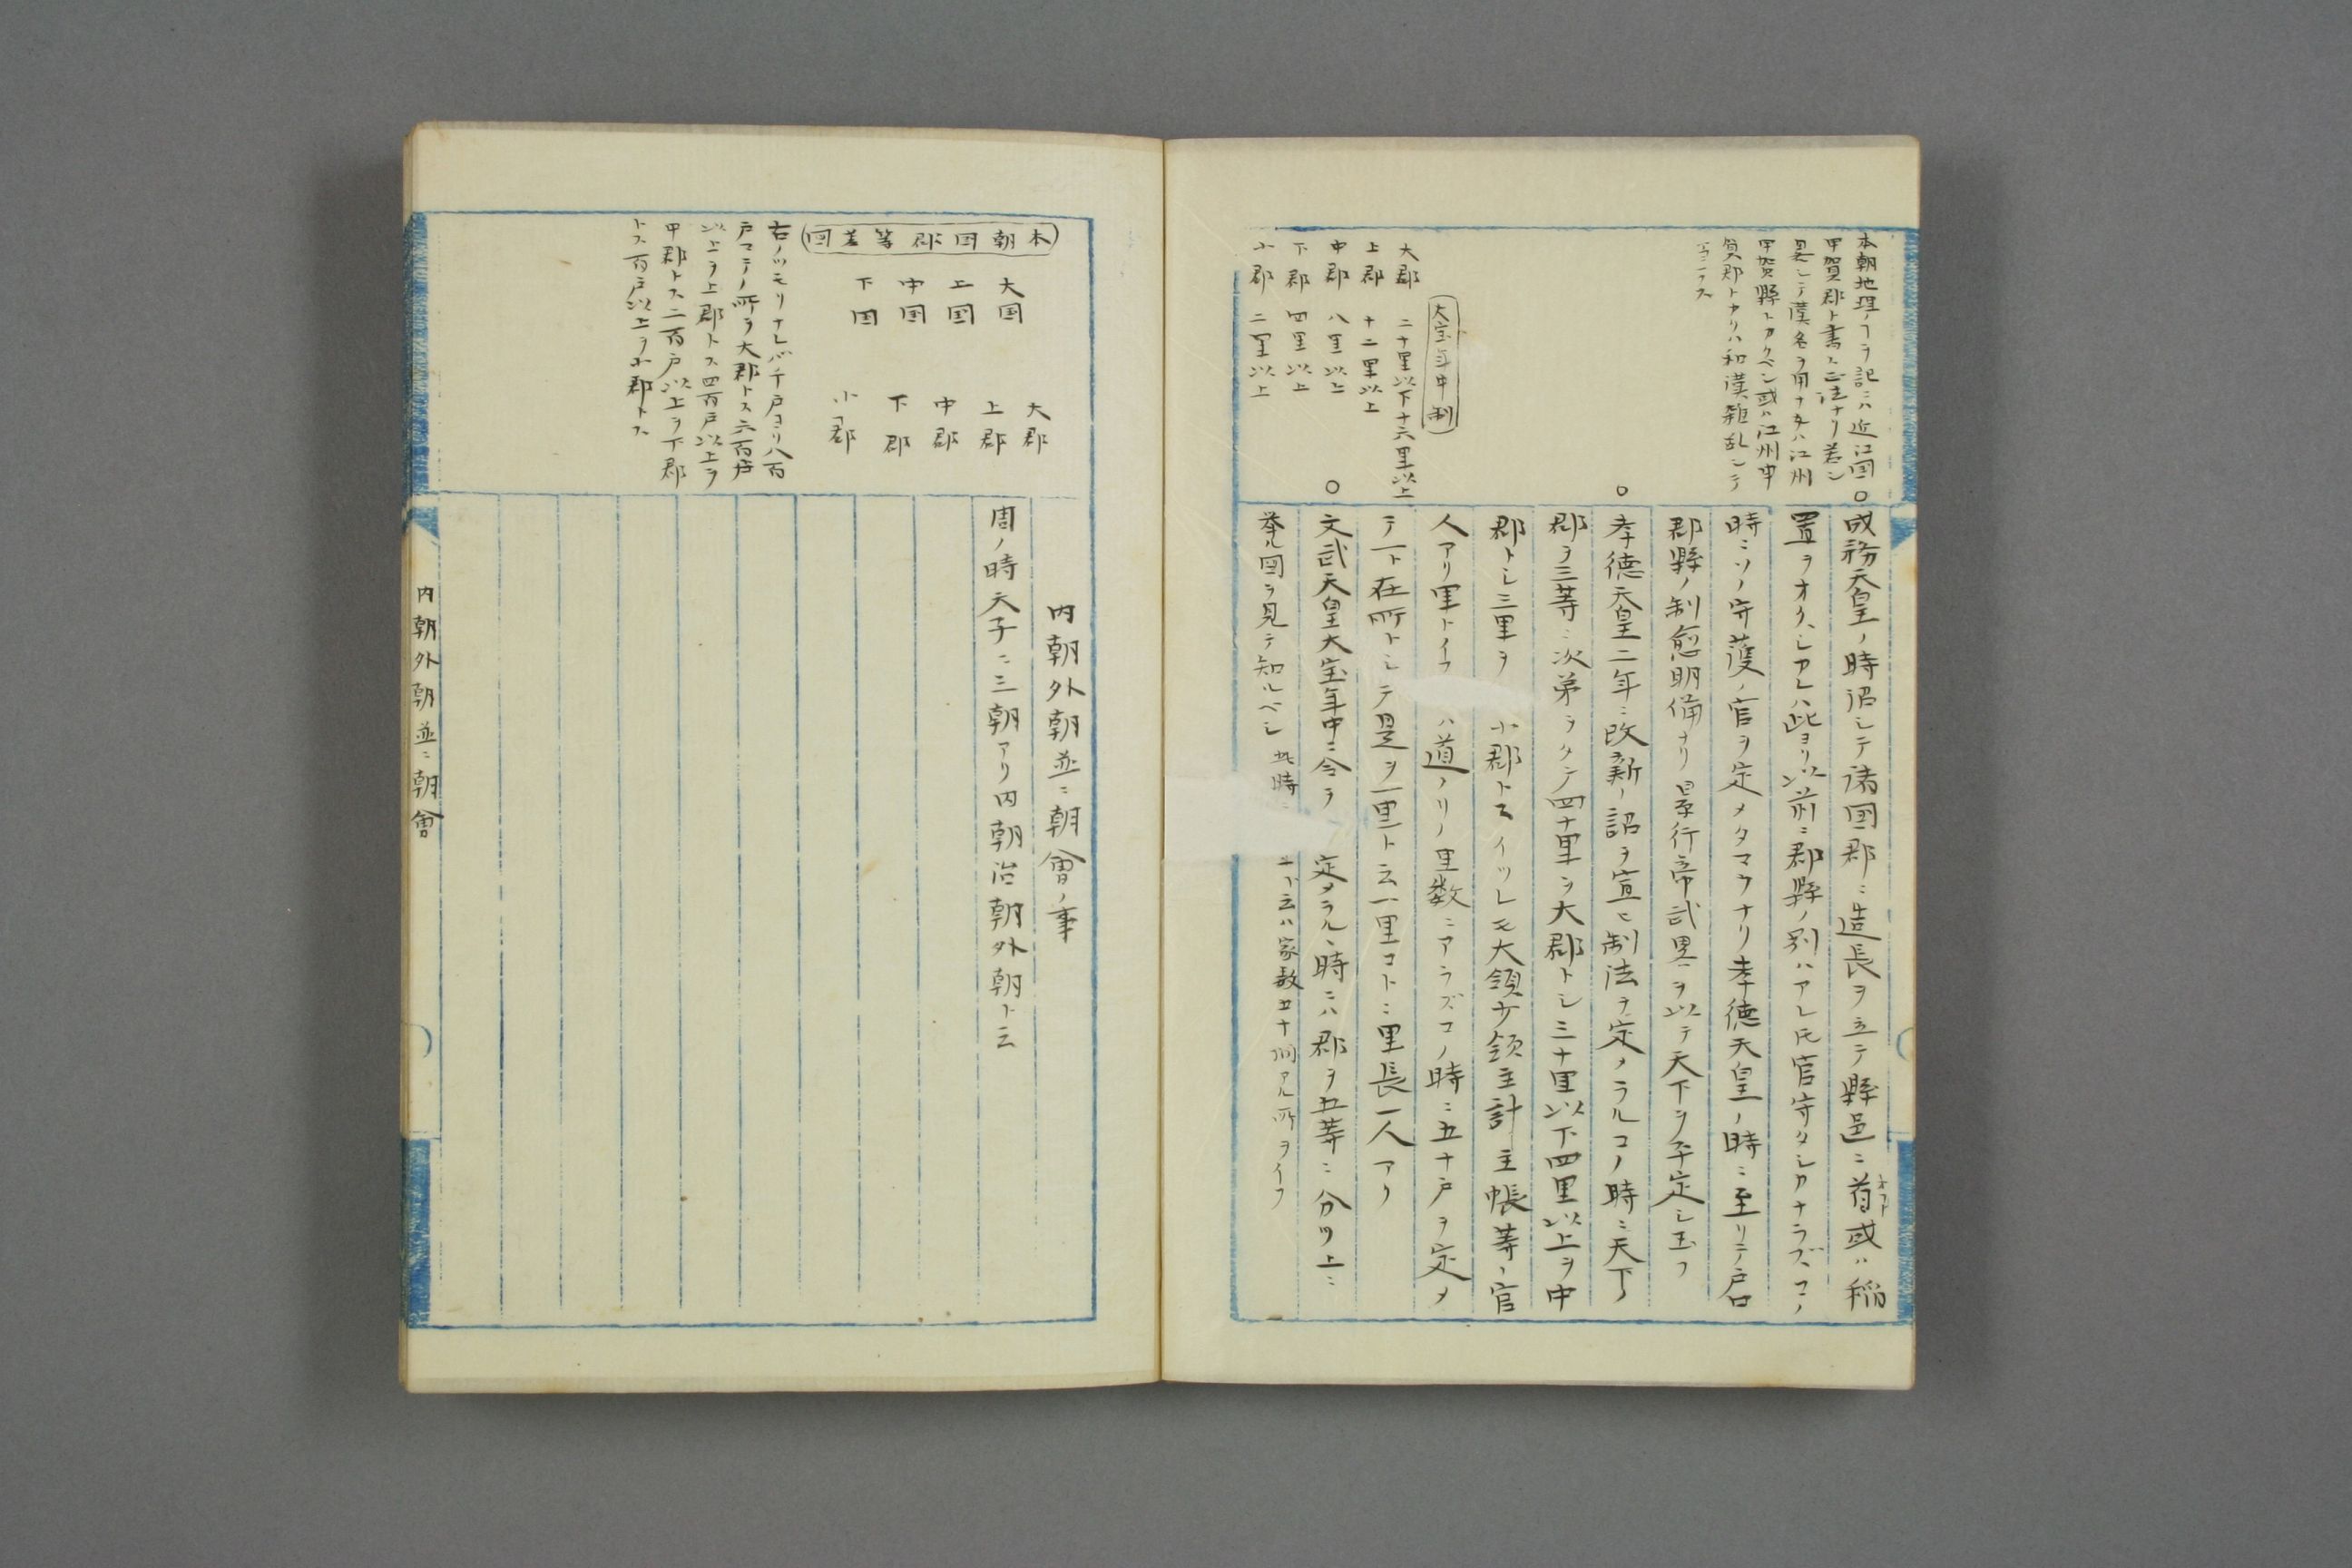 本朝地理ノフラ記ニハ近江国
甲賀郡ト書ス正法ナリ若シ
異ヒテ漢名ヲ用ナラハ江州
甲賀縣トカクベシ或ハ江州甲
賀郡トカクハ和漢雑乱シテ
大宝年中制
大郡 二十里以下十六里以上
上郡 十二里以上
中郡 八里以上
下郡 四里以上
小郡 二里以上
○成務天皇ノ時詔シテ諸国郡ニ造長ヲ立テ縣邑ニ首或ハ稲
置ヲオクシカレハ此ヨリ以前ニ郡縣ノ別ハアレ氏官守タシカナラズコノ
時ニソノ守護ノ官ヲ定メタマウナリ孝徳天皇ノ時ニ至リテ戸口
郡縣ノ制愈明備ナリ景行帝武畧ヲ以テ天下ヲ平定シ玉フ
○孝徳天皇二年ニ改新ノ詔ヲ宣ヒ制法ヲ定メラルコノ時ニ天下ノ
郡ヲ三等ニ次第ヲタテ四十里ヲ大郡トシ三十里以下四里以上ヲ中
郡トシ三里ヲ 小郡トス イツレモ大領少領主計主帳等ノ官
人アリ里トイフ ハ道ノリノ里数ニアラズコノ時ニ五十戸ヲ定メ
テ一ト在所トシテ是ヲ一里ト云一里コトニ里長一人アリ
○文武天皇大宝年中ニ令ヲ 定メラル、時ニハ郡ヲ五等ニ分ツ上ニ
挙ル図ヲ見テ知ルベシ 此時ニ 一下云ハ家数五十間アル所ヲイフ
本朝国郡等差図
大国 上国 中国 下国
大郡 上郡 中郡 下郡 小郡
右ノツモリナレバ千戸ヨリ八百
戸マテノ所ヲ大郡トス六百戸
以上ヲ上郡トス四百戸以上ヲ
中郡トス二百戸以上ヲ下郡
トス百戸以上ヲ小郡トス
内朝外朝並ニ朝會ノ事
周ノ時天子ニ三朝アリ内朝治朝外朝ト云
内朝外朝並ニ朝會